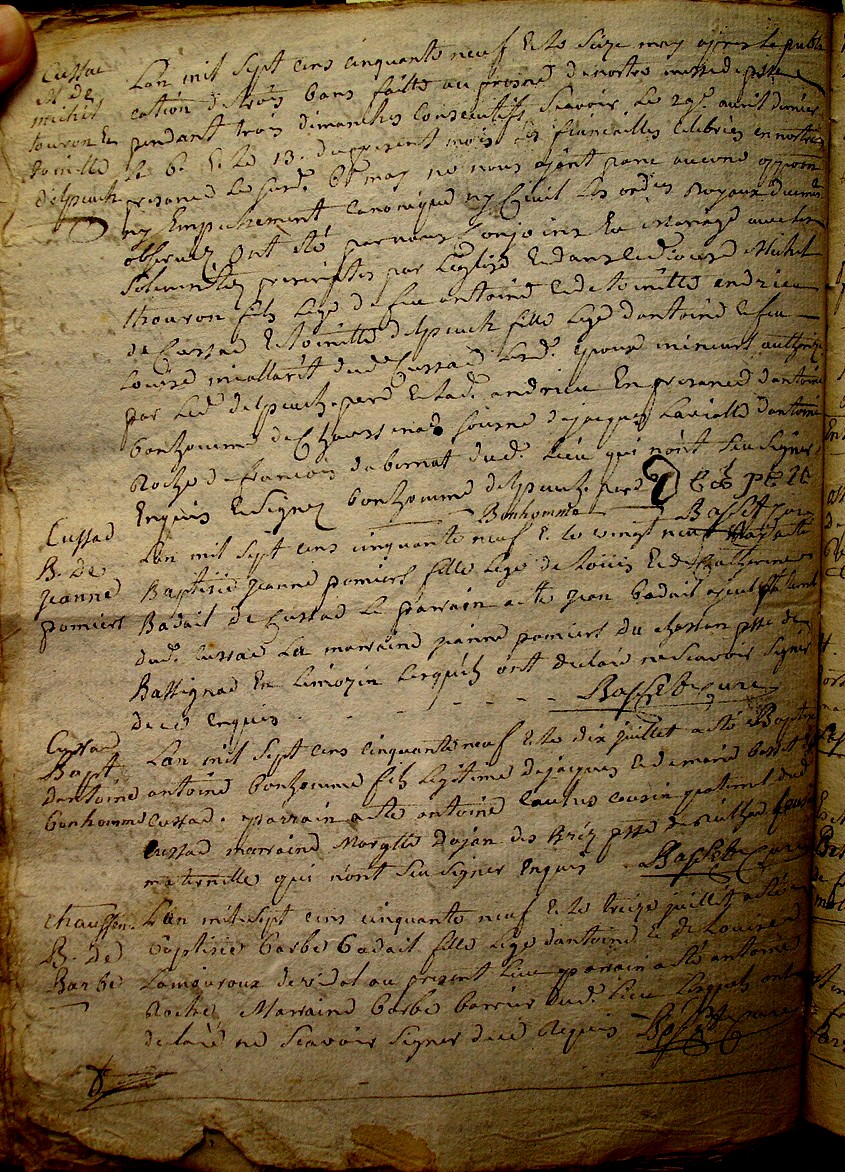 Cussac
M. de
michel
touron et
toinette
delpuech
Lan mil sept cens cinquante neuf et le seize may apres la publi
cation de trois bans faitte au prosne de nostre messe de psse
pendant trois dimanches consecutifs scavoir le 29e. avril dernier
le 6. et le 13. du present mois les fiancailles celebrées en nostre
presence le susd. may ne nous ayant paru aucune opposon
ny Empechement canonique ny Civil les ordres Royaux dument
observez ont été par nous conjoins En Mariage avec les
solemnités prescrittes par l'eglise
thouron fils lege de feu antoine et de toinette andrieu
de Cussac et toinette delpuech fille lege d'antoine et feu
Louise miallaret dud Cussac
par led. delpuech pere et lad. andrieu En presence d'antoine
bonhomme de Chaussenac de jacques Lavialle d'antoine
Roche de francois dabernat dud. Lieu qui n'ont sceu signer
Enquis et signez bonhomme delpuech pere
Bonhomme Basset cure
Cussac
B. de
jeanne
pomiers
Lan mil sept cens cinquante neuf et le vingt neuf may a été
Baptisée jeanne pomiers fille lege de Loüis et de Catherine
Badail de Cussac Le parrain a été jean badail ayeul paternel
dud. Cussac La marraine jeanne pomiers du psse de
Bassignac En Limozin lesquels ont declaré ne scavoir signer
de ce enquis. Basset cure
Cussac
Bapt
dantoine
bonhomme
Lan mil sept cens cinquante neuf et le dix juillet a été Baptisé
antoine bonhomme fils legitime de jacques et de marie basset de
Cussac. parrain a été antoine cousin paternel dud
Cussac marraine Margtte Dojan des psse de
maternelle qui n'ont sceu signer Enquis Basset Cure
chaussen.
B. de
Barbe
Lan mil sept cens cinquante neuf et le treize juillet a été
baptisée barbe badail fille lege d'antoine et de Louise
Lamouroux de vidal au present Lieu parrain a été antoine
Roche Marraine barbe barrier dud. Lieu Lesquels ont
declaré ne scavoir signer de ce Requis Basset cure